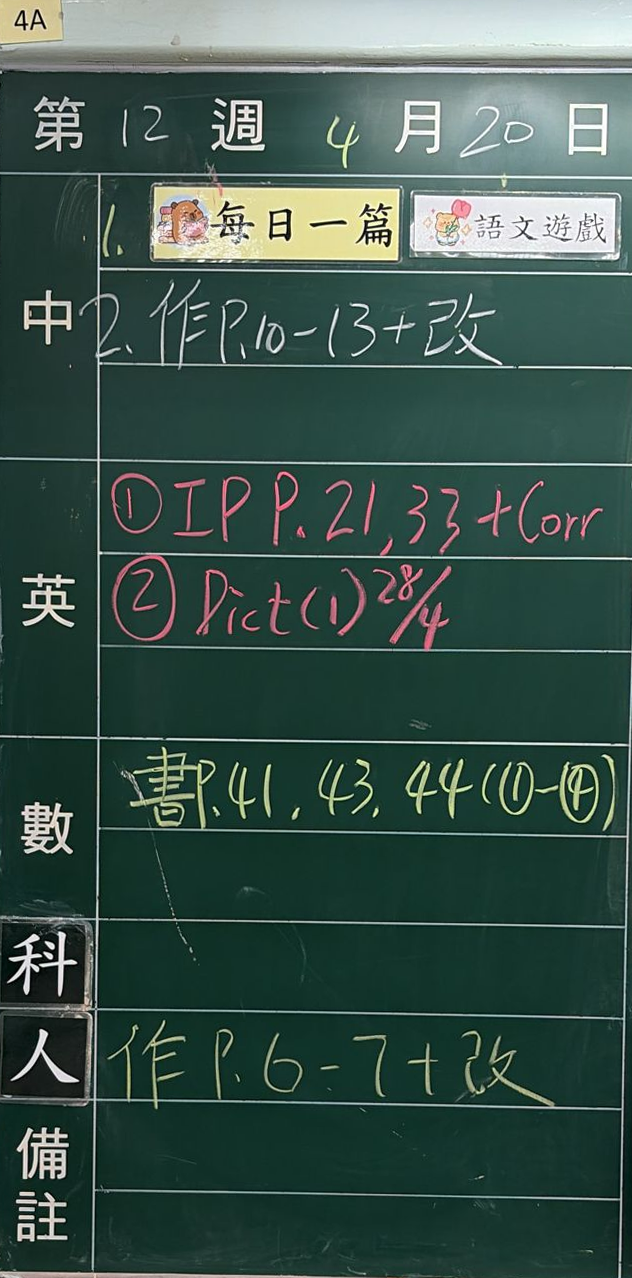 4A
第 12 週 4 月 20 日
中
1. 每日一篇 語文遊戲
2. 作P.10-13+改
英
① IP P.21,33 +Corr
② Dict(1) 28/4
數
書P.41, 43, 44(①-④)
科
人
作P.6-7+改
備註